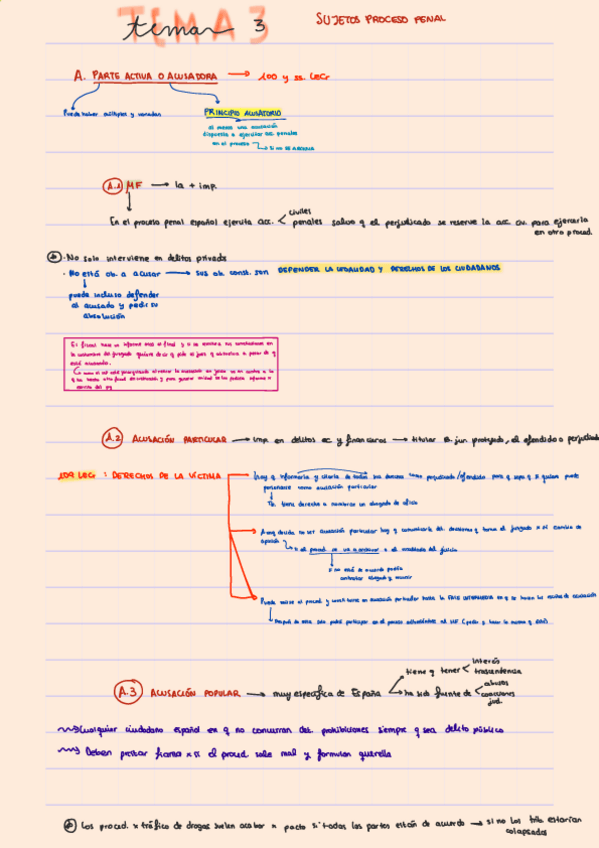 TEMA 3
tema 3
SUJETOS PROCESO PENAL
A. PARTE ACTIVA O ACUSADORA → 100 y ss. LECr
Puede haber múltiples y variadas
PRINCIPIO ACUSATORIO
al menos una acusación
dispuesta a ejercitar acc. penales
en el proceso
si no SE ARCHIVA
A.1 MF → la + imp.
En el proceso penal español ejercita acc. < civiles
penales salvo q el perjudicado se reserve la acc. civ. para ejercerla
en otro proced.
· No solo interviene en delitos privados
· No está ob. a acusar → sus ob. const. son DEFENDER LA LEGALIDAD Y DERECHOS DE LOS CIUDADANOS
puede incluso defender
al acusado y pedir su
absolución
El fiscal hace un informe oral al final y si
A.2 ACUSACIÓN PARTICULAR → imp. en delitos ec. y financieros → titular B. jur. protegido, el ofendido o perjudicado
109 LECr : DERECHOS DE LA VÍCTIMA
Hay q informarla y citarla de todos sus derechos como perjudicado/ofendido para q sepa q si quiere puede
personarse como acusación particular
Tb. tiene derecho a nombrar un abogado de oficio
Aunq decida no ser acusación particular hay q comunicarle det. decisiones q tome el juzgado x si cambia de
opinión
si el proced. se va a archivar o el resultado del juicio
si no está de acuerdo podría
contratar abogado y recurrir
Puede entrar al proced. y constituirse en acusación particular hasta la FASE INTERMEDIA en q se hacen los escritos de acusación
Después de esto solo podrá participar en el proceso adhiriéndose al MF
A.3 ACUSACIÓN POPULAR → muy específica de España
tiene y tener < interés
trascendencia
ha sido fuente de < abusos
coacciones
jud.
Cualquier ciudadano español en q no concurran det. prohibiciones siempre q sea delito público
Deben prestar fianza x si el proced. sale mal y formulan querella
Los proced. x tráfico de drogas suelen acabar x pacto si todas las partes están de acuerdo → si no los trib. estarían
colapsados